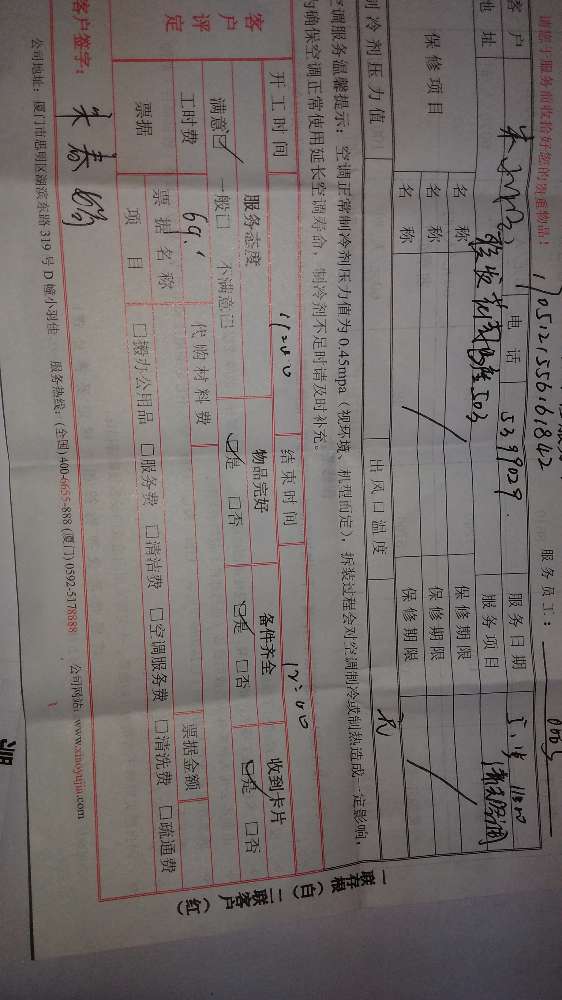 请您于服务前收拾好您的贵重物品!
1705121556161842
服务员工:
客户
电话
5399029
服务日期
11:00
地址
503
服务项目
清洗空调
保修项目
名称
保修期限
名称
保修期限
名称
保修期限
制冷剂压力值
出风口温度
空调服务温馨提示: 空调正常制冷剂压力值为 0.45mpa (视环境、机型而定), 拆装过程会对空调制冷或制热造成一定影响,
为确保空调正常使用延长空调寿命, 制冷剂不足时请及时补充。
开工时间
11:00
结束时间
12:00
客户评定
服务态度
物品完好
备件齐全
收到卡片
满意☑ 一般口 不满意口
☑是 口否
☑是 口否
☑是 口否
工时费
69.
代购材料费
票据金额
票据
票据名称
项目
口搬办公用品 口服务费 口清洁费 口空调服务费 口清洗费 口疏通费
客户签字:
朱春
公司地址: 厦门市思明区湖滨东路 319 号 D 幢小羽佳 服务热线: (全国) 400-6655-888 (厦门) 0592-5178888 公司网站: www.xiaoyujia.com
一联存根(白) 二联客户(红)